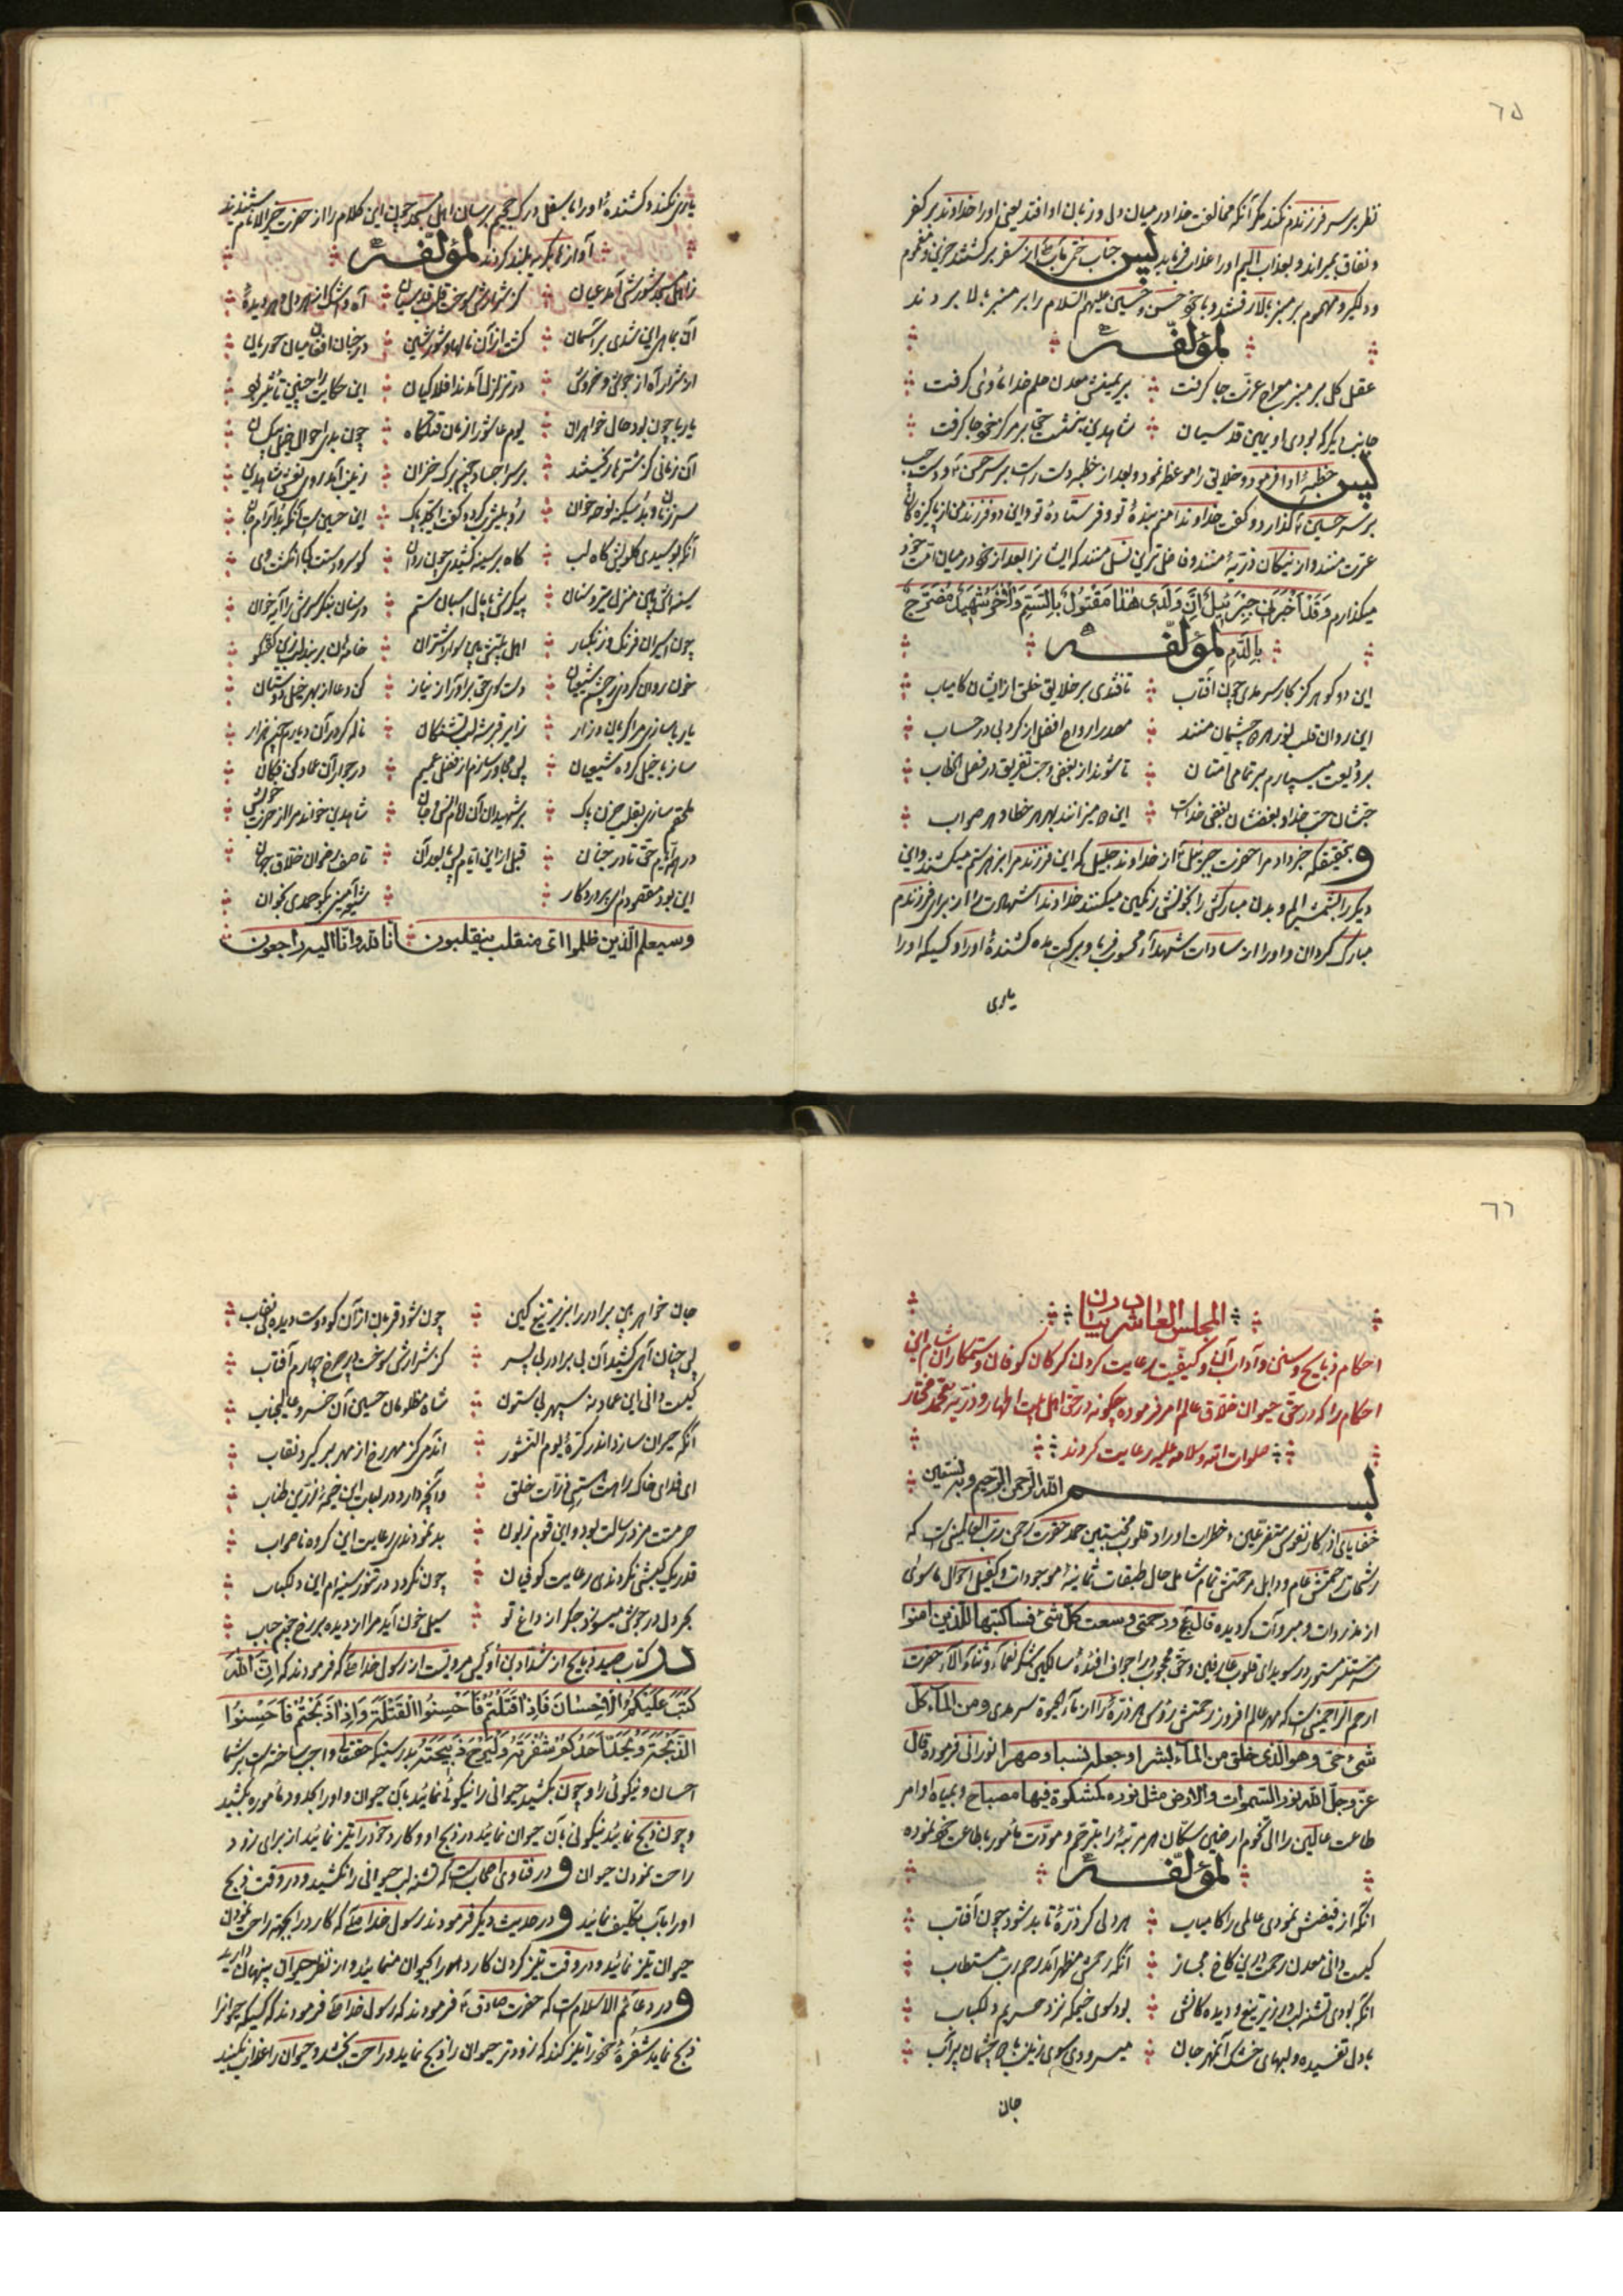 ٦٥
نظر بر سر فرزندم نکند مگر آنکه مخالفت خدا در میان دل و زبان او افتد یعنی او را خداوند بر کفر
و نفاق بمیراند و بعذاب الیم او را عذاب فرماید پس جناب ختمی مآب از سفر برگشتند حزین و مغموم
و دلگیر و مهموم بر منبر بالا رفتند و با خود حسن و حسین علیهم السلام را بر منبر بالا بردند
لمؤلفه
عقل کل بر منبر معراج عزت جا گرفت بر یمینش معدن حلم خدا مأوی گرفت
جانب ایسر که بودی او یمین قدسیان شاه دین بنشست حق بر مرکز خود جا گرفت
پس خطبهٔ ادا فرمود و خلایق را موعظه نمود و بعد از خطبه دست راست بر سر حسن و دست چپ
بر سر حسین گذارد و گفت خداوندا منم بندهٔ تو و فرستادهٔ تو و این دو فرزند من از پاکیزه‌گان
عترت منند و از نیکان ذریهٔ منند و فاضل‌ترین نسل منند که ایشان را بعد از خود در میان امت خود
میگذارم وَقَدْ اَخْبَرَنی جِبْرَئیلُ اَنَّ وَلَدی هٰذا مَقْتُولٌ بِالسَّمِّ وَالْآخَرُ شَهیدٌ مُضَرَّجٌ
بِالدَّمِ لمؤلفه
این دو گوهر کز کنار سرمدی چون آفتاب تافتندی بر خلایق خلق از ایشان کامیاب
این روان قلب نور هر دو چشمان منند مصدر ارواح افضل از کروبی در حساب
بر ودیعت میسپارم بر تمامی امتان تا شوند از بغض و حب تفریق در فصل الخطاب
حبشان حب خدا و بغضشان بغض خداست این دو میزانند بهر هر خطا و هر صواب
و بتحقیق که خبر داد مرا حضرت جبرئیل از خداوند جلیل که این فرزند مرا بزهر ستم میکشند و این
دیگر را بشمشیر الم و بدن مبارکش را بخونش رنگین میکنند خداوندا شهادت را از برای فرزندم
مبارک گردان و او را از سادات شهدا محسوب فرما و برکت مده کشندهٔ او را و کسیکه او را
یاری
یاری نکند و کشندهٔ او را باسفل درک جحیم برسان اهل مسجد چون این کلام را از حضرت خیر الانام شنیدند
آواز بگریه بلند کردند لمؤلفه
ز اهل مسجد شورشی آمد عیان کز شرارش سوخت قلب قدسیان آه و اشک از هر دل و هر دیدهٔ
آن بماهی این شدی بر آسمان گشت از آن ناله‌ها و شور و شین در جنان افغان میان حوریان
از شرار آه از جوش و خروش در تزلزل آمدند افلاکیان این حکایت را چنین تأثیر بود
یا رب چون بود حال خواهران یوم عاشورا زمان قتلگاه چون بدی احوال خیل بیکسان
آن زمانی کز شترها ریختند بر سر اجساد چون برگ خزان زینب آمد روی نعش شاه دین
سر زنان و بد سکینه نوحه خوان رو بلیلش کرد و گفت ای جد پاک این حسین است آنکه بد آرام جان
آنکه بوسیدی گلویش گاه لب گاه بر سینه کشیدی چون روان
یا رب ساز مرا کربلا در زار زایر قبر شه لب تشنگان ناله کرد آن دیارم چون هزار
ساز با خیل گروه شیعیان پس مجاور سازم از فضل عمیم در جوار آن عماد کن فکان
این بود مقصودم ای پروردگار شیعه آمین گو حمدی بخوان
وسیعلم الذین ظلموا ای منقلب ینقلبون انا لله وانا الیه راجعون
٦٦
المجلس العاشر در بیان
احکام ذبایح و سنن و آداب آنها و کیفیت رعایت کردن گرگان کوفان و ستمکاران شام این
احکام را که در حق حیوان خلاق عالم امر فرموده چگونه در حق اهل بیت اطهار و ذریه محمد مختار
صلوات الله و سلامه علیه رعایت کردند
بسم الله الرحمن الرحیم وبه نستعین
خفایای اذکار نفوس متفرعین و خطرات اوراد قلوب مخبتین حمد حضرت رحمن رب العالمین است که
رشحات رحمتش عام و وابل مرحمتش تمام شامل حال طبقات ثمانیهٔ موجودات و کفیل احوال ماسوی
از مذروات و مبروآت گردیده قال تع ورحمتی وسعت کل شیء فساکتبها للذین امنوا
مستتر مستور در سویدای قلوب عارفین و حق محجوب در اجواف افئدهٔ سالکین شکر نعماء و ثناء آلاء حضرت
ارحم الراحمین است که مهر عالم افروز رحمتش روشن هر ذره را از ماء الحیوة سرمدی ومن الماء کل
شیء حی وهو الذی خلق من الماء بشرا وجعله نسبا وصهرا نورانی فرموده قال
عز وجل الله نور السموات والارض مثل نوره کمشکوة فیها مصباح و بمیاه اوامر
طاعت عالمین را الی تخوم ارضین سکان هر مرتبهٔ را بترحم و مودت مأمور باطاعت خود نموده
لمؤلفه
آنکه از فیضش نمودی عالمی را کامیاب هر دلی کز ذرهٔ تابد شود چون آفتاب
کیست دانی معدن رحمت در این کاخ مجاز آنکه رحمش مظهر آمد رحم رب مستطاب
آنکه بودی تشنه لب در زیر تیغ و دیده‌گانش بود سوی خیمگه نزد حریم دلکباب
با دل تفسیده و لبهای خشک آنمهر جان میسرودی سوی زینب با دو چشمان پر آب
جان
جان خواهر بین برادر را بزیر تیغ کین چون شود قربان از آن کو دوست دیده بی‌نقاب
پس چنان آهی کشید آن بی‌برادر بی‌پسر کز شرارش سوخت در چرخ چهارم آفتاب
کیست دانی این عماد نه سپهر بی‌ستون شاه مظلومان حسین آن خسرو عالیجناب
آنکه حیران سازد اندر کرهٔ یوم النشور اندمی کز مهر رخ از مهر برگیرد نقاب
ای فدای خاک راهت هستی ذرات خلق وآنچه دارد در لعاب این خیمهٔ زرین طناب
حرمتت مزد رسالت بود و این قوم زبون بد نمودندی رعایت این گروه ناصواب
قدر یک کبشی نکردندی رعایت کوفیان چون نگردد در تنور سینه‌ام این دل کباب
بحر دل در جوش میسوزد جگر از داغ تو سیل خون آید مرا از دیده بر رخ چون حباب
در کتاب صید و ذبایح از شداد بن اوس مرویست از رسول خدا ص که فرمودند که اِنَّ اللهَ
کَتَبَ عَلَیْکُمُ الْاِحْسانَ فَاِذا قَتَلْتُمْ فَاَحْسِنُوا الْقَتْلَةَ وَاِذا ذَبَحْتُمْ فَاَحْسِنُوا
الذَّبْحَةَ وَلْیُحِدَّ اَحَدُکُمْ شَفْرَتَهُ وَلْیُرِحْ ذَبیحَتَهُ بدرستیکه حقتعالی واجب ساخته است بر شما
احسان و نیکوئی را و چون بکشید حیوانی را نیکوئی نمائید بآن حیوان و او را بحدود مأموره بکشید
و چون ذبح نمائید نیکوئی بآن حیوان نمائید در ذبح او و کارد خود را تیز نمائید از برای زود
راحت نمودن حیوان و در فتاوی اصحابست که تشنه لب حیوانی را نکشید و در وقت ذبح
او را بآب تکلیف نمائید و در حدیث دیگر فرمودند رسول خدا ص که کارد را بجهة راحت نمودن
حیوان تیز نمائید و در وقت تیز کردن کارد او را بحیوان منمائید و از نظر حیوان پنهان دارید
و در دعائم الاسلام است که حضرت صادق ع فرمودند که رسول خدا ص فرمودند که کسیکه حیوانرا
ذبح نماید شفرهٔ خود را تیز کند که زودتر حیوان را ذبح نماید و راحت بخشد و حیوان را عذاب نکنید